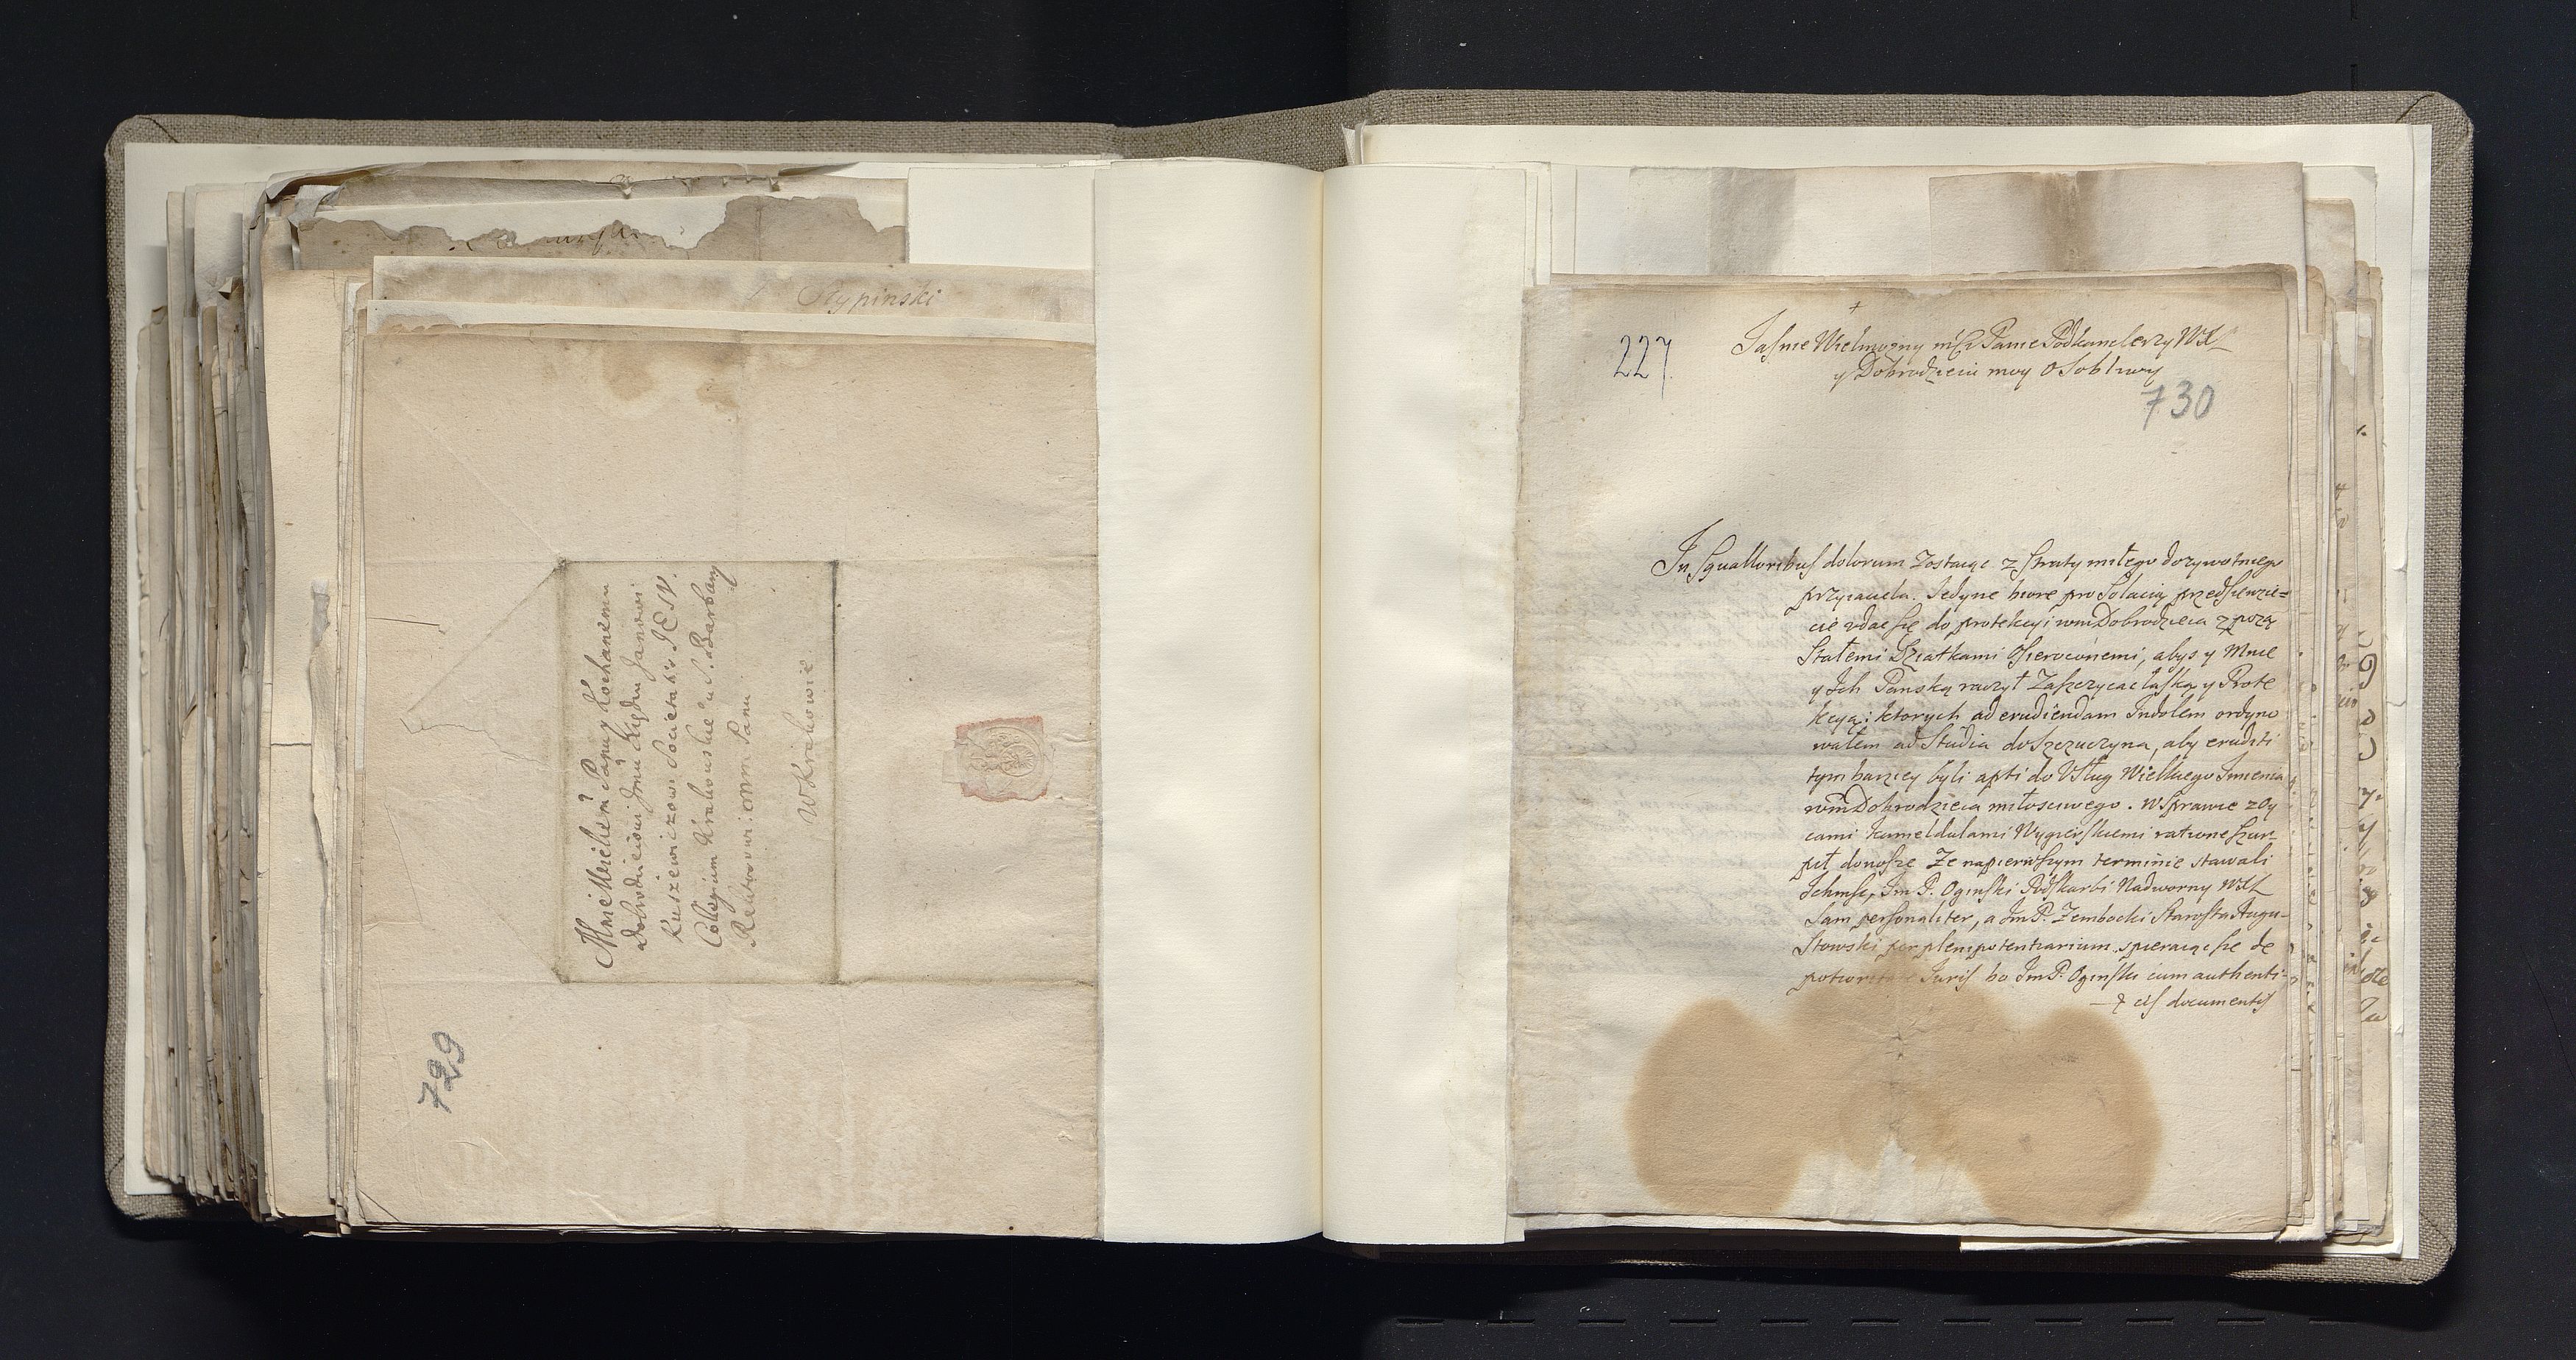 Stypinski
Mnie Wielce Panu y Kochanemu
Dobrodzieiowi Jmći Xiędzu Janowi
Kuszewiczowi Societatis IESV.
Collegium Krakowskie° u S. Barbary
Rektorowi. mm Panu
W Krakowie.
729
+
227
Jasnie Wielmozny mści Panie Podkanclerzy WXL
y Dobrodzieiu moy Osobliwy
730
In Squalloribus dolorum zostaiąc z straty miłego dozywotniego
przyiaciela. Jedyne biorę pro Solatio przedsiewzię=
cie udac się do protekcyi wm Dobrodzieia z pozo
Stałemi Dziatkami Osieroconemi, abys y Mnie
y Ich Panską raczył Zaszczycac łaską y Prote
kcyą: ktorych ad erudiendam Indolem ordyno
wałem ad Studia do Szczuczyna, aby eruditi
tym barziey byli apti do Usług Wielkiego Imienia
wm Dobrodzieia miłosciwego. W Sprawie z Oy
cami Kameldulami Wygierskiemi ratione Szur_
pił donoszę Ze na pierwszym terminie stawali
Ichmsc, Im P. Oginski Podskarbi Nadworny WXL
Sam personaliter, a Im P. Zembocki Starosta Augu_
Stowski per plenipotentiarium spieraiąc się de
Juris bo Im P. Oginski cum authenti=
cis documentis